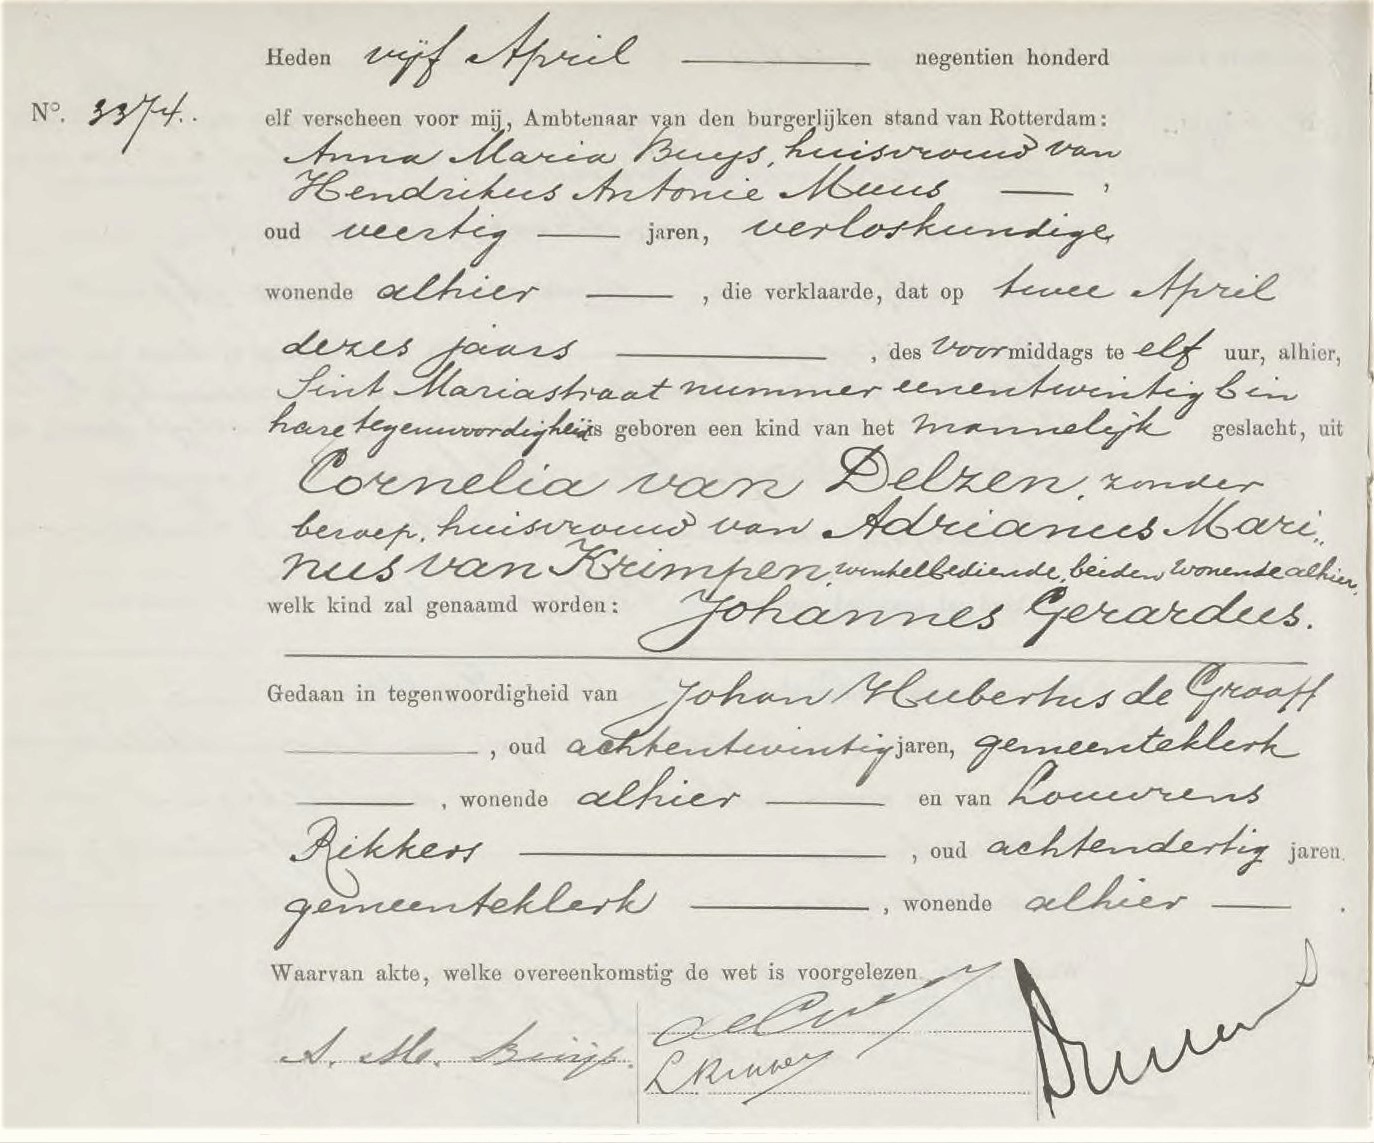 Heden vijf April negentien honderd
No. 3374.
elf verscheen voor mij, Ambtenaar van den burgerlijken stand van Rotterdam:
Anna Maria Buys, huisvrouw van
Hendrikus Antonie Muus,
oud veertig jaren, verloskundige,
wonende alhier, die verklaarde, dat op twee April
dezes jaars, des voormiddags te elf uur, alhier,
Sint Mariastraat nummer eenentwintig b in
hare tegenwoordigheid is geboren een kind van het mannelijk geslacht, uit
Cornelia van Delzen, zonder
beroep, huisvrouw van Adrianus Mari„
nus van Krimpen, winkelbediende, beiden wonende alhier,
welk kind zal genaamd worden: Johannes Gerardus.
Gedaan in tegenwoordigheid van Johan Hubertus de Graaff
, oud achtentwintig jaren, gemeenteklerk
, wonende alhier en van Louwrens
Rikkers, oud achtendertig jaren,
gemeenteklerk, wonende alhier.
Waarvan akte, welke overeenkomstig de wet is voorgelezen.
A. M. Buijs.